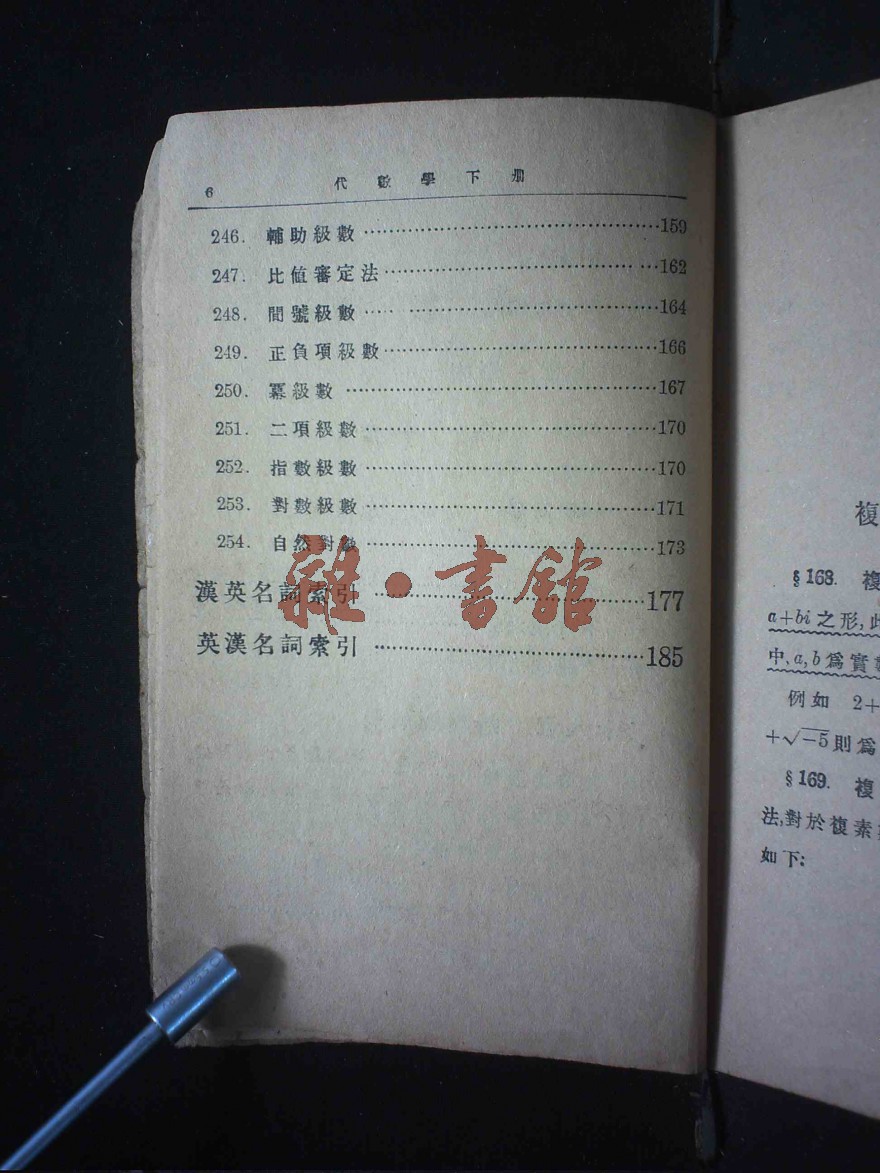 6 代數學下册
246. 輔助級數 159
247. 比值審定法 162
248. 間號級數 164
249. 正負項級數 166
250. 冪級數 167
251. 二項級數 170
252. 指數級數 170
253. 對數級數 171
254. 自然對數 173
漢英名詞索引 177
英漢名詞索引 185
雜·書館
複
§168. 複
a+bi之形,此
中,a,b爲實數
例如 2+
+√−5則爲
§169. 複
法,對於複素
如下: